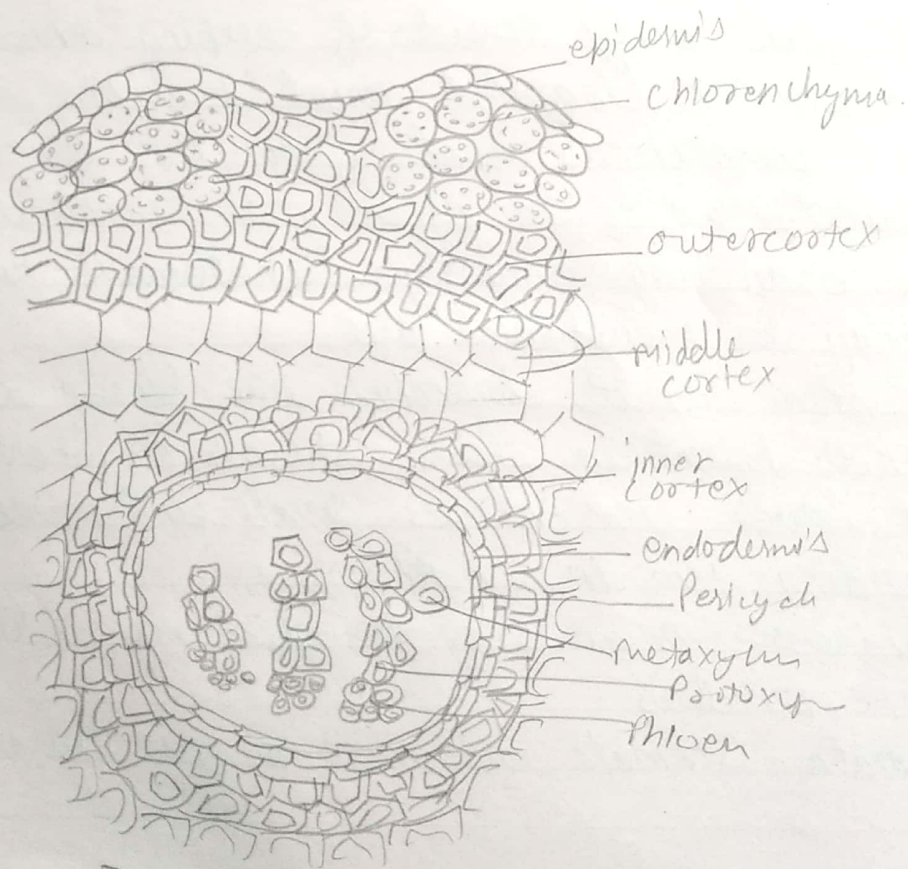 epidermis
chlorenchyma.
outercortex
middle
cortex
inner
cortex
endodermis
Pericycle
metaxylem
Protoxy
Phloem